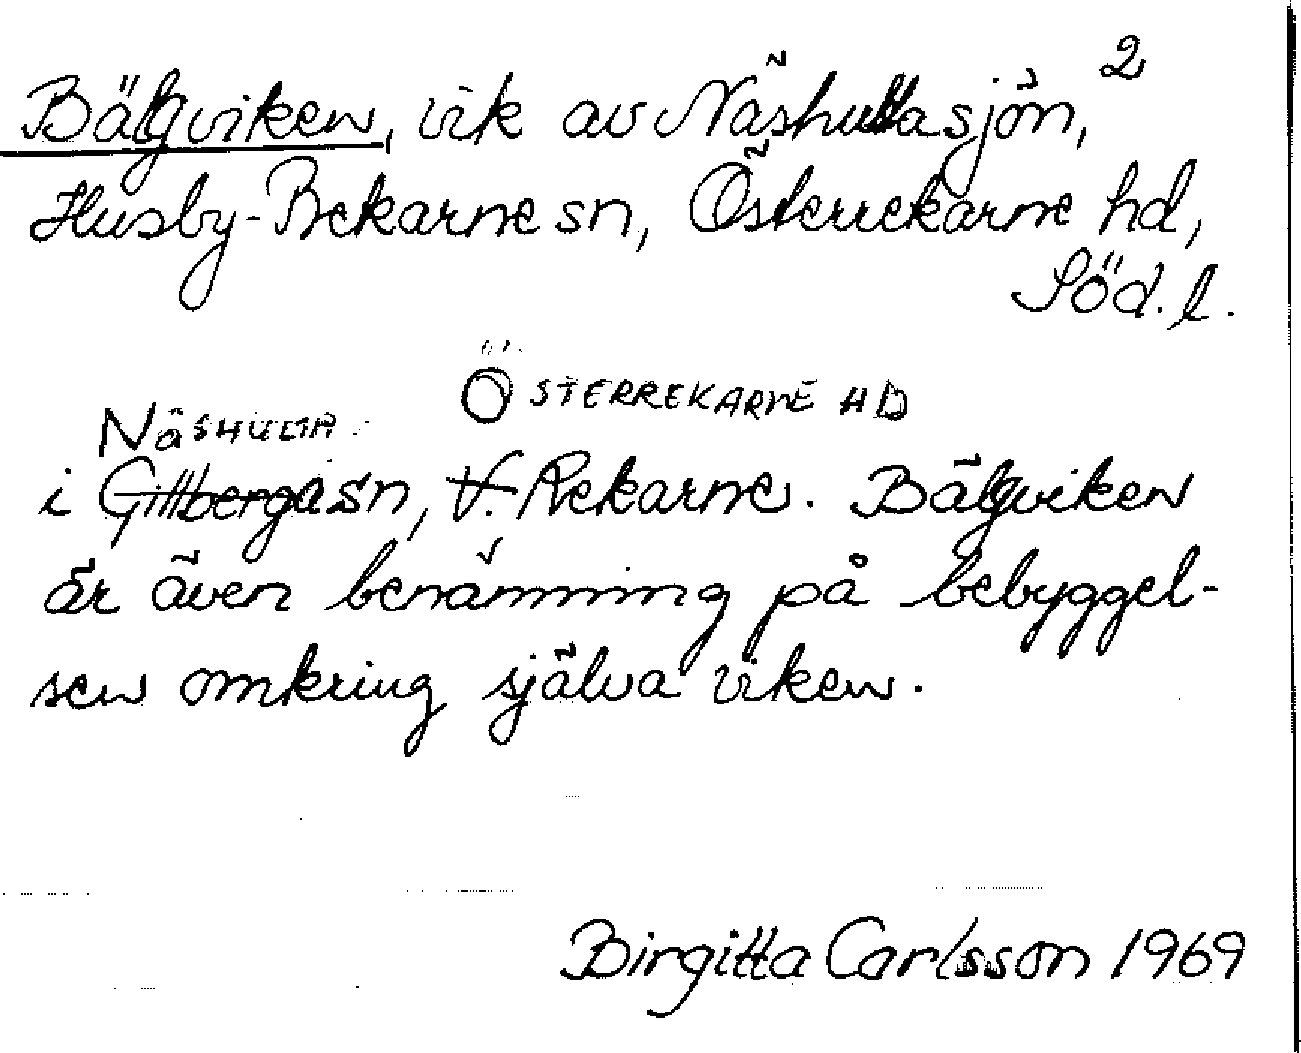 Bälgviken, vik av Näshultasjön, 2
Husby-Rekarne sn, Österrekarne hd,
Söd. l.
ÖSTERREKARNE HD
NÄSHULTA
i Gillberga sn, V. Rekarne. Bälgviken
är även benämning på bebyggel-
sen omkring själva viken.
Birgitta Carlsson 1969